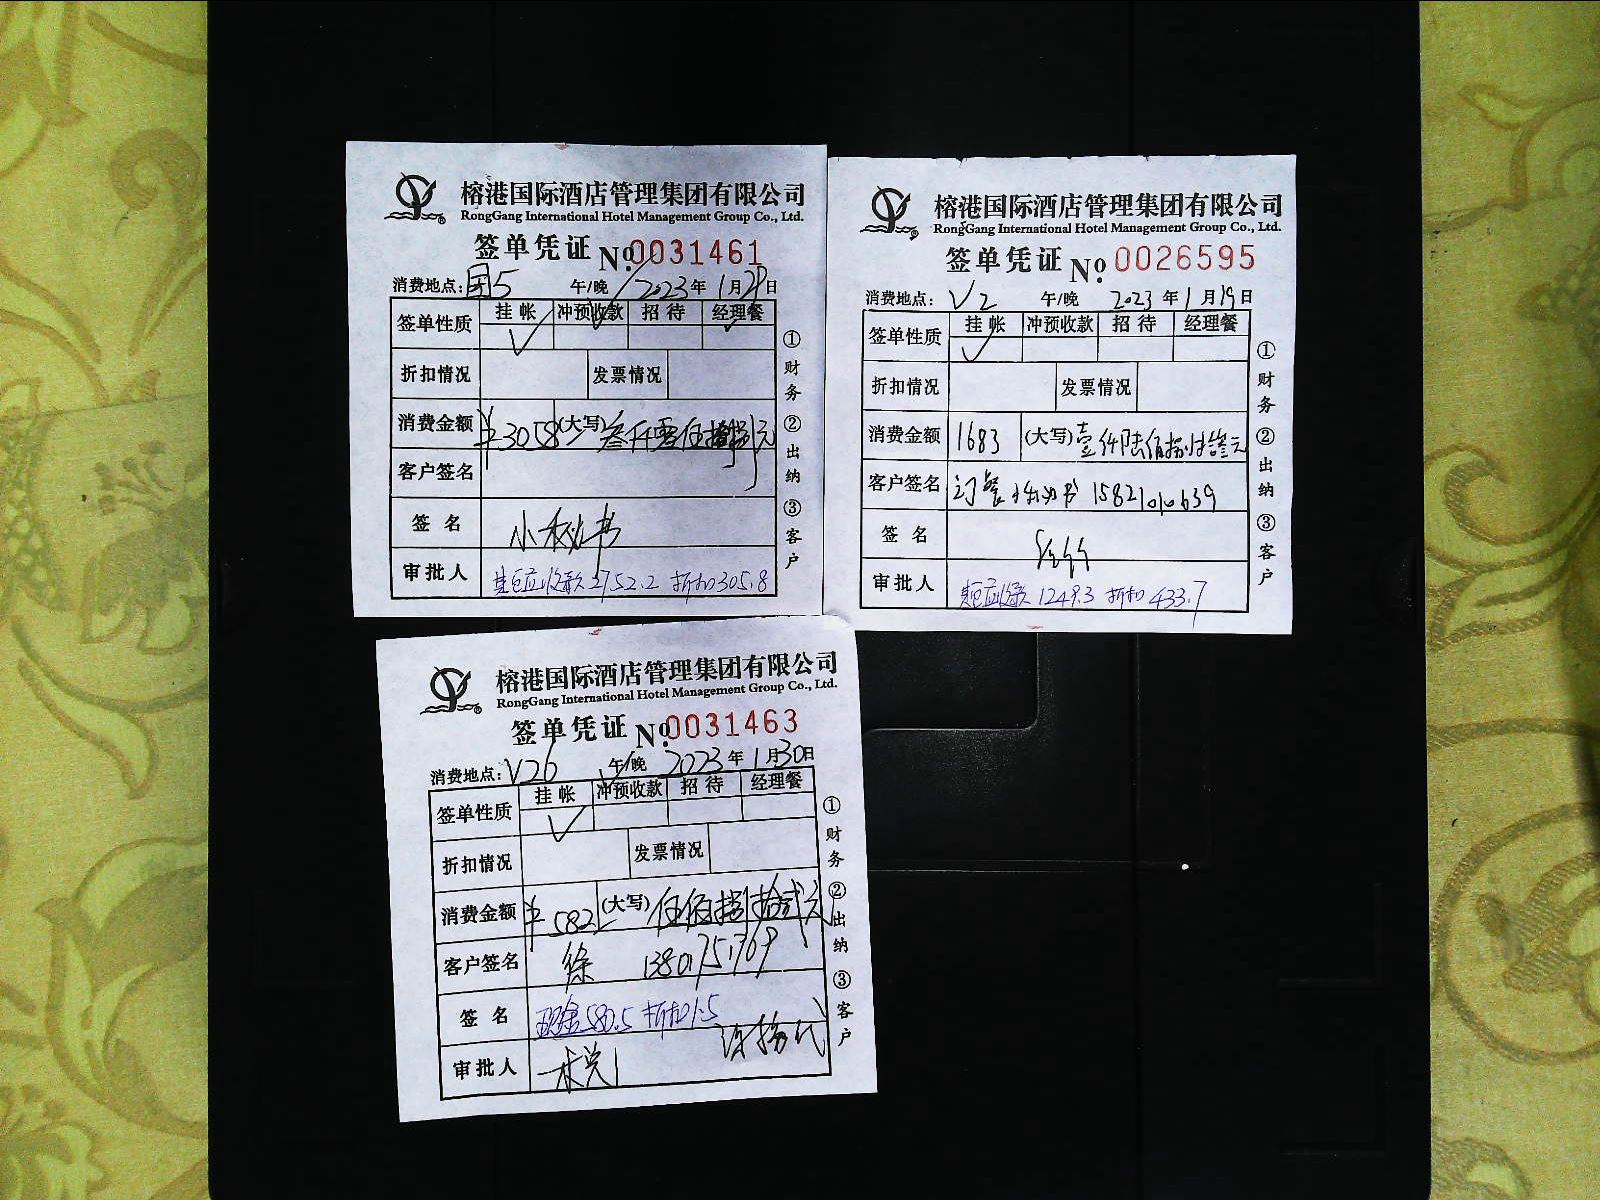 榕港国际酒店管理集团有限公司
RongGang International Hotel Management Group Co., Ltd.
签单凭证 No. 0031461
消费地点: 国5 午/晚 2023年1月29日
签单性质 挂帐 冲预收款 招待 经理餐
折扣情况 发票情况
消费金额 ¥3058 (大写) 叁仟零伍拾捌元
客户签名
签名 小秘书
审批人 应收款2752.2 折扣305.8
① 财务 ② 出纳 ③ 客户
榕港国际酒店管理集团有限公司
RongGang International Hotel Management Group Co., Ltd.
签单凭证 No. 0026595
消费地点: V2 午/晚 2023年1月19日
签单性质 挂帐 冲预收款 招待 经理餐
折扣情况 发票情况
消费金额 1683 (大写) 壹仟陆佰捌拾叁元
客户签名 订餐小秘书 15821010639
签名
审批人 应收款1249.3 折扣433.7
① 财务 ② 出纳 ③ 客户
榕港国际酒店管理集团有限公司
RongGang International Hotel Management Group Co., Ltd.
签单凭证 No. 0031463
消费地点: V26 午/晚 2023年1月30日
签单性质 挂帐 冲预收款 招待 经理餐
折扣情况 发票情况
消费金额 ¥582 (大写) 伍佰捌拾贰元
客户签名 徐
签名 现金580.5 折扣1.5
审批人
① 财务 ② 出纳 ③ 客户